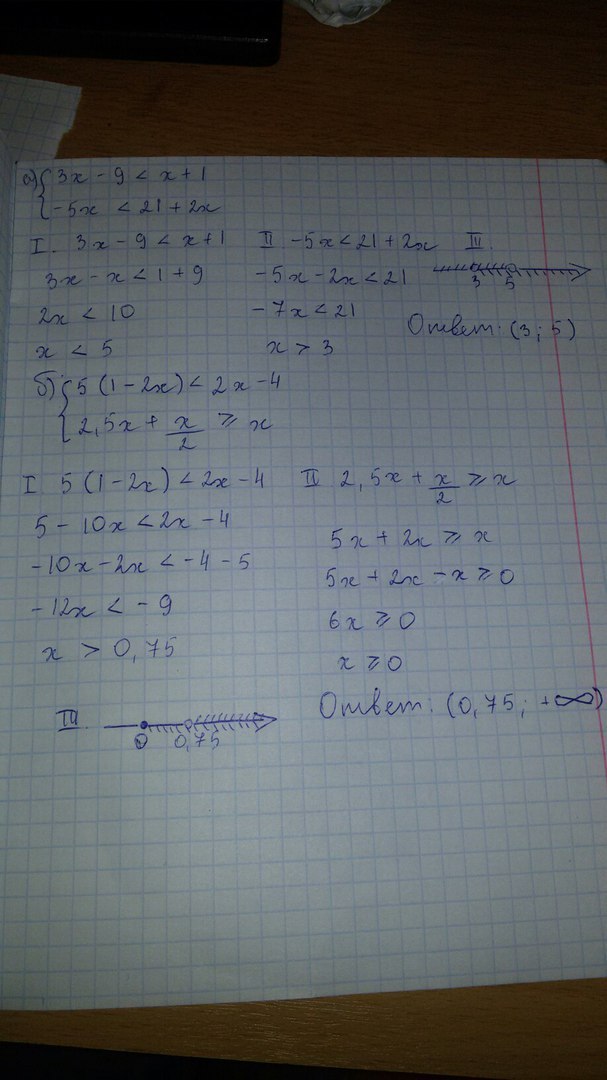 а) { 3x - 9 < x + 1
-5x < 21 + 2x
I. 3x - 9 < x + 1
3x - x < 1 + 9
2x < 10
x < 5
II. -5x < 21 + 2x
-5x - 2x < 21
-7x < 21
x > 3
III.
3 5
Ответ: (3; 5)
б) { 5(1 - 2x) < 2x - 4
2,5x + x/2 ⩾ x
I 5(1 - 2x) < 2x - 4
5 - 10x < 2x - 4
-10x - 2x < -4 - 5
-12x < -9
x > 0,75
II 2,5x + x/2 ⩾ x
5x + 2x ⩾ x
5x + 2x - x ⩾ 0
6x ⩾ 0
x ⩾ 0
III.
0 0,75
Ответ: (0,75; +∞)